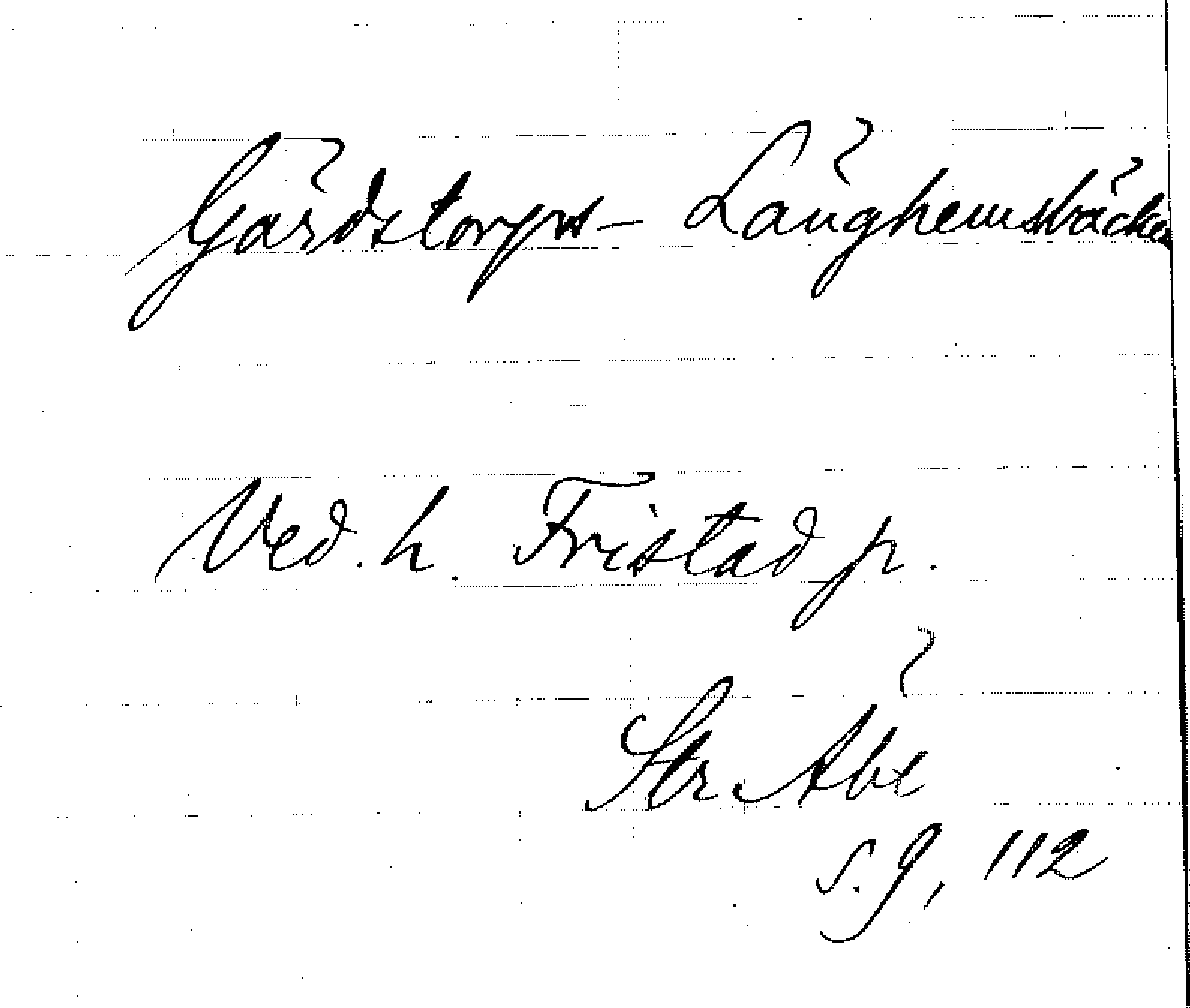 Gärdstorps- Länghemsbäcken
Ved. h. Fristad p.
Str Åbe
s. 9, 112